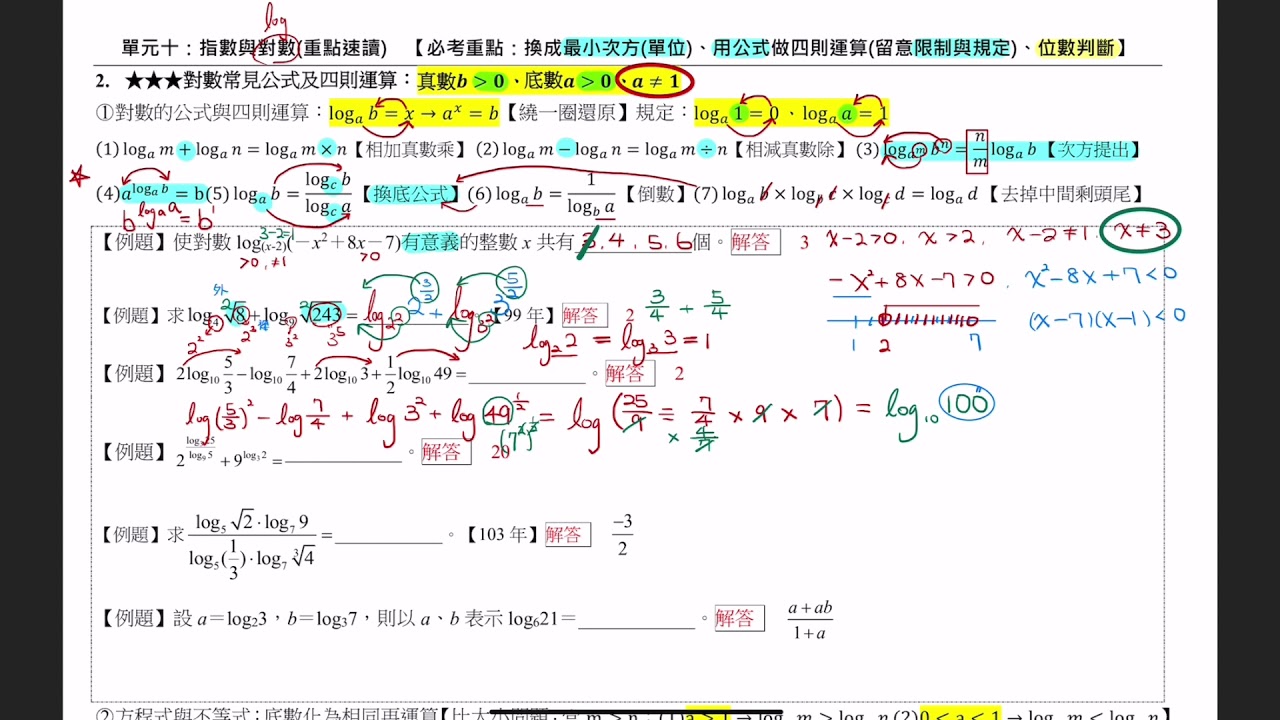 log
單元十：指數與對數(重點速讀) 【必考重點：換成最小次方(單位)、用公式做四則運算(留意限制與規定)、位數判斷】
2. ★★★對數常見公式及四則運算：真數b > 0、底數a > 0、a ≠ 1
①對數的公式與四則運算：logₐ b = x → aˣ = b【繞一圈還原】規定：logₐ 1 = 0、logₐ a = 1
(1) logₐ m + logₐ n = logₐ m × n【相加真數乘】(2) logₐ m − logₐ n = logₐ m ÷ n【相減真數除】(3) log_{a^m} b^n = n/m logₐ b【次方提出】
(4) a^{logₐ b} = b(5) logₐ b = log_c b / log_c a【換底公式】(6) logₐ b = 1 / log_b a【倒數】(7) logₐ b × log_b c × log_c d = logₐ d【去掉中間剩頭尾】
b^{logₐ a} = b¹
【例題】使對數 log_{(x-2)}(−x²＋8x－7)有意義的整數 x 共有 3, 4, 5, 6 個。解答 3 x-2>0, x>2, x-2≠1, x≠3
3-2=1
>0, ≠1 >0
-x²+8x-7>0, x²-8x+7<0
(x-7)(x-1)<0
1 2 7
【例題】求 log₄ √8 + log₉ √243 = 【99 年】解答 2 3/4 + 5/4
log_{2²} 2^{3/2} + log_{3²} 3^{5/2}
外
log₂2 = log₃3 = 1
【例題】2log₁₀ 5/3 − log₁₀ 7/4 + 2log₁₀ 3 + 1/2 log₁₀ 49 = 。解答 2
log(5/3)² - log 7/4 + log 3² + log 49^{1/2} = log (25/9 ÷ 7/4 × 9 × 7) = log₁₀ 100
(7²)^{1/2} × 4/7
【例題】 + 9^{log₃ 2} = 。解答 20
【例題】求 (log₅ √2 · log₇ 9) / (log₅(1/3) · log₇ ∛4) = 。【103 年】解答 −3/2
【例題】設 a＝log₂3，b＝log₃7，則以 a、b 表示 log₆21＝ 。解答 (a + ab)/(1 + a)